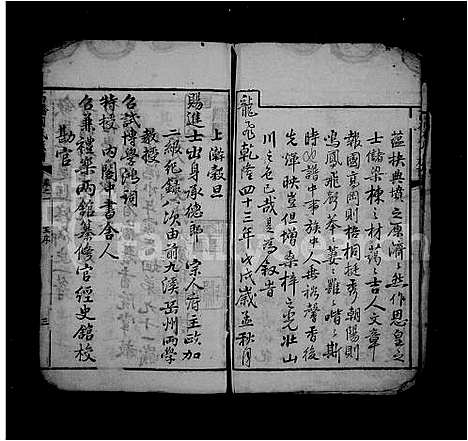 蕴扶典墳之原濟＝然作思皇之
士儲梁棟＝之材藹＝吉人文章
報國高岡則梧桐挺秀朝陽則
鳴鳳飛舞菶＝萋＝雝＝喈＝斯
時以譜中事族中人垂松馨香後
先輝映豈但增桑梓之光壯山
川之色已哉是為叙旹
龍飛乾隆四十三年戊戌歲孟秋月
上澣穀旦
賜進士出身承德郎 宗人府主政加
二級紀錄八次由前九溪岳州兩學
教授
召試博學鴻詞
特授 內閣中書舍人
召兼禮樂兩館纂修官經史館校
勘官
卷之一 三